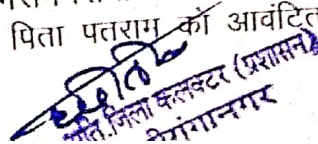 पिता पतराम को आवंटित
अति. जिला कलक्टर (प्रशासन)
श्रीगंगानगर